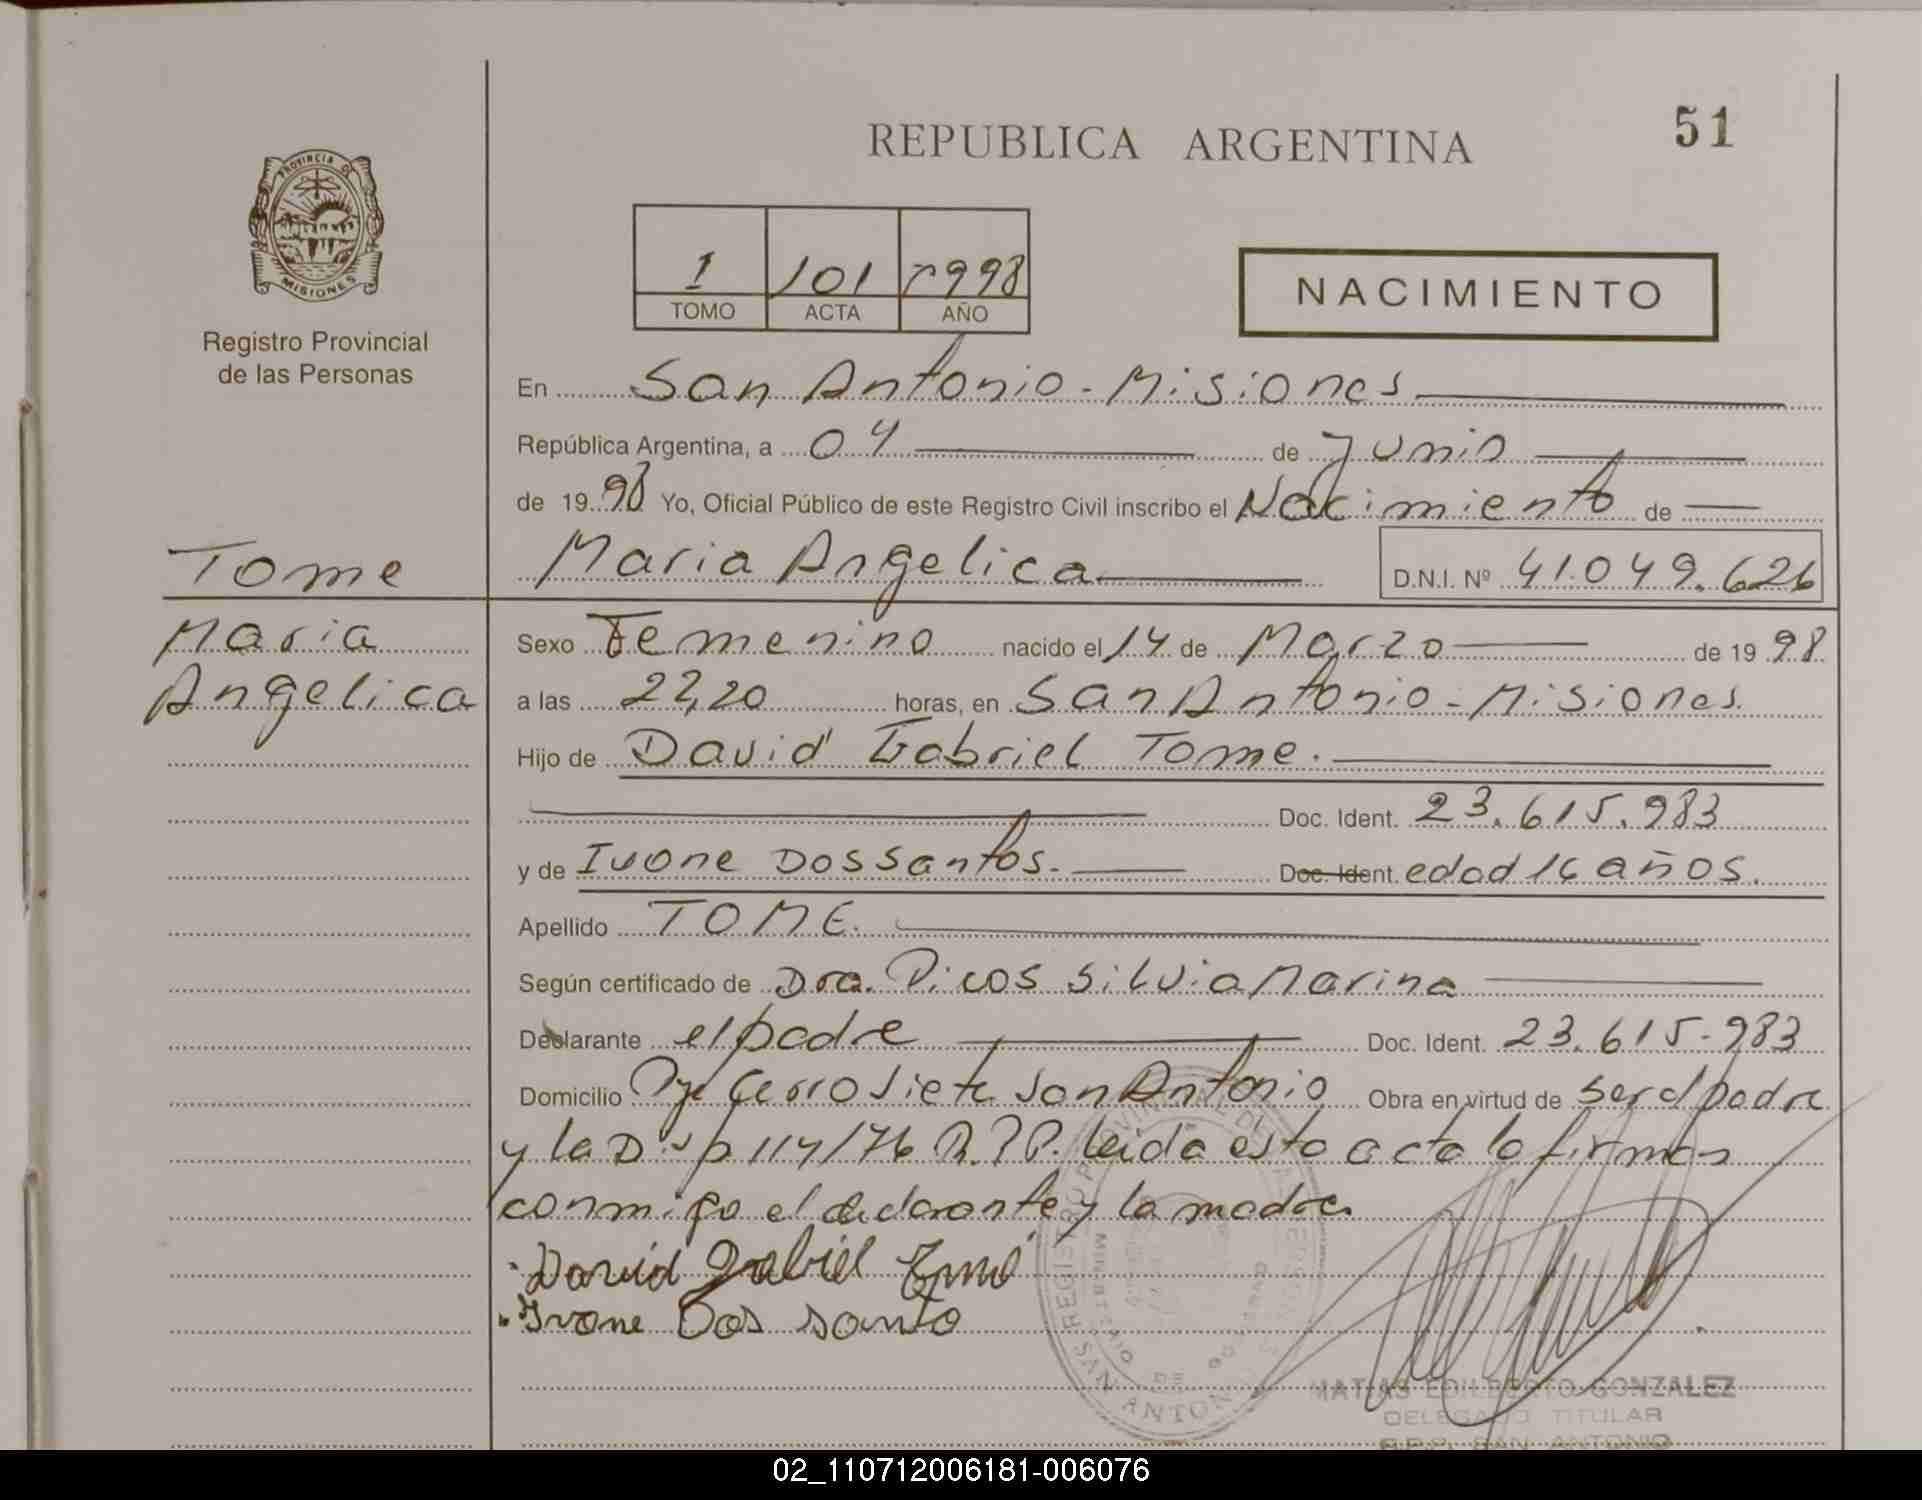 51
REPUBLICA ARGENTINA
PROVINCIA DE
MISIONES
Registro Provincial
de las Personas
I 101 1998
TOMO ACTA AÑO
NACIMIENTO
En San Antonio - Misiones
República Argentina, a 04 de Junio
de 19 98 Yo, Oficial Público de este Registro Civil inscribo el Nacimiento de
Tome
Maria Angelica D.N.I. Nº 41.049.626
Maria
Angelica
Sexo Femenino nacido el 14 de Marzo de 19 98
a las 22,20 horas, en San Antonio - Misiones.
Hijo de David Gabriel Tome.
Doc. Ident. 23.615.983
y de Ivone Dos Santos. Doc. Ident. edad 16 años.
Apellido TOME.
Según certificado de Dra. Picos Silvia Marina
Declarante el padre Doc. Ident. 23.615-983
Domicilio Pje Cerro Siete San Antonio Obra en virtud de ser el padre
y la Disp 114/76 R.P.P. leida esta acta la firman
conmigo el declarante y la madre.
David Gabriel Tomé
Ivone Dos santo
MINISTERIO DE GOBIERNO
SAN ANTONIO
MATIAS EDILBERTO GONZALEZ
DELEGADO TITULAR
R.P.P. SAN ANTONIO
02_110712006181-006076